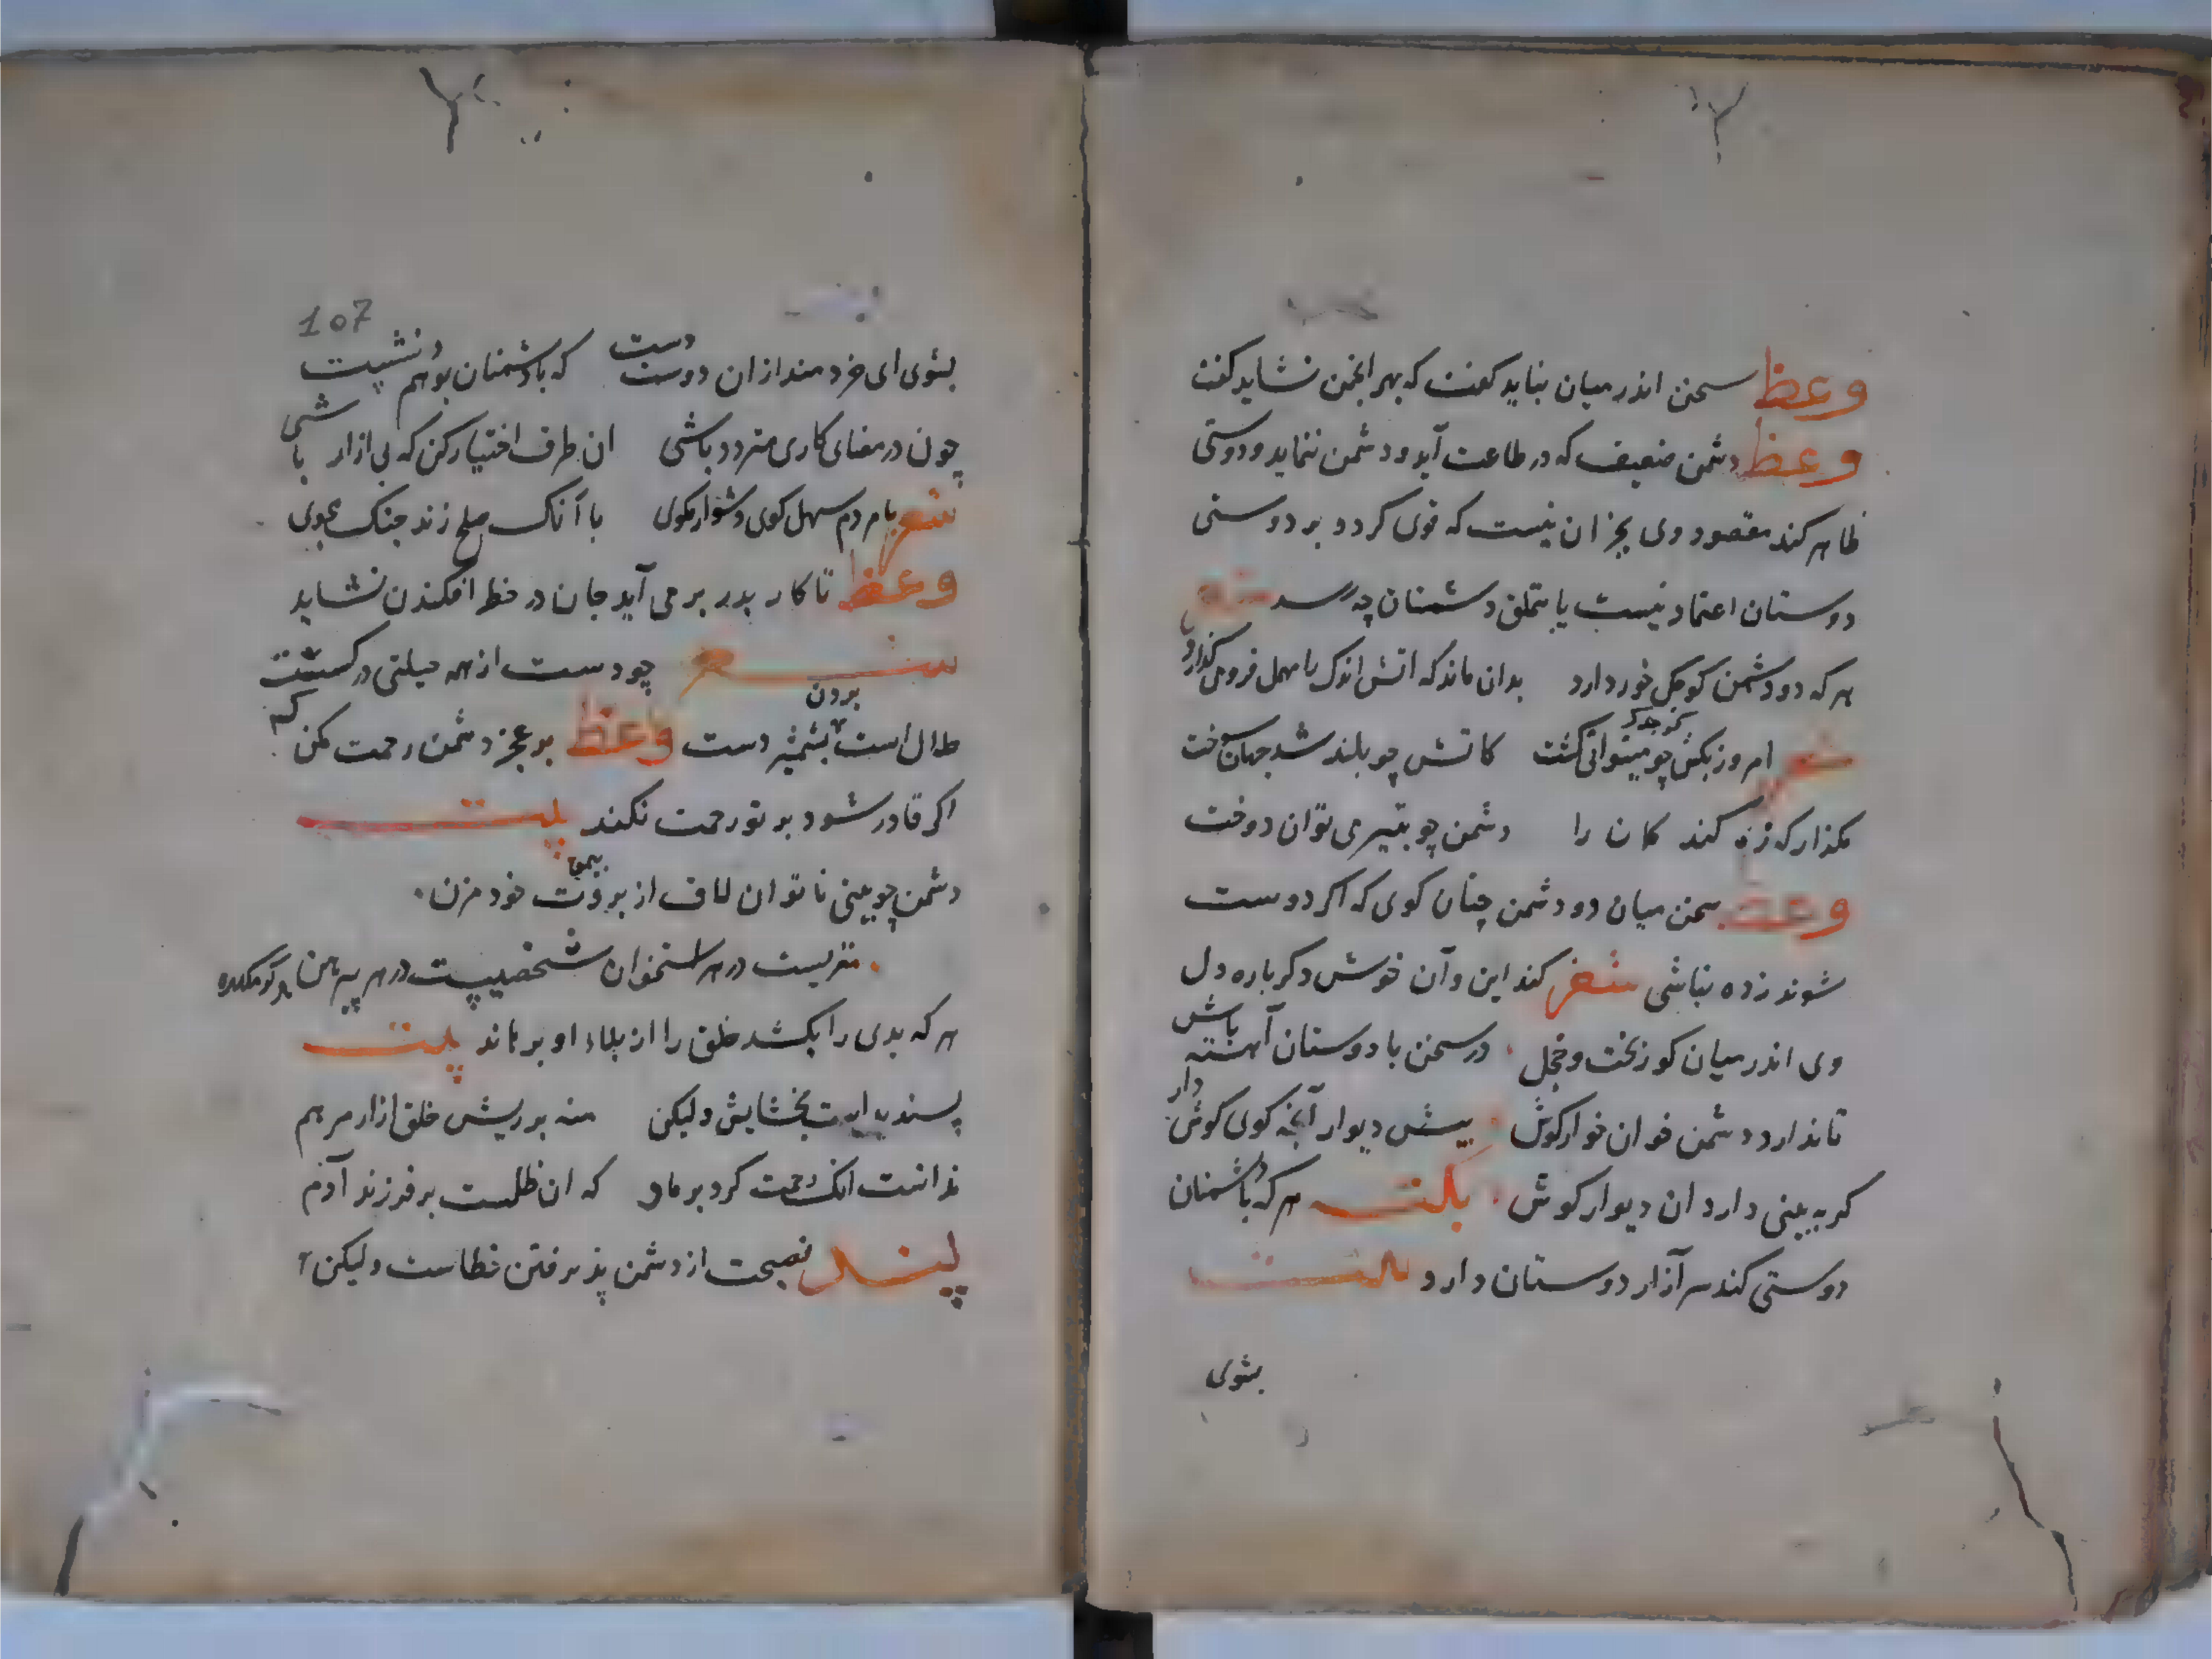 وعظ سخن اندر میان نباید کفت که بهر انجمن نشاید کفت
وعظ دشمن ضعیف که در طاعت آید و دشمن ننماید و دوستی
ظاهر کند مقصود وی بجز ان نیست که قوی کردد بر دوستی
دوستان اعتماد نیست یا بتملق دشمنان چه رسد شعر
هر که دو دشمن کوچک خور دارد بدان ماند که اتش اندک را مهمل فرومی کذارد
شعر امروز بکش چو میتوانی کشت کاتش چو بلند شد جهان سوخت
مکذار که زه کند کمان را دشمن چو بتیر می توان دوخت
وعظ سخن میان دو دشمن چنان کوی که اکر دوست
شوند زده نباشی شعر کند این و آن خوش دکر باره دل
وی اندر میان کور بخت و خجل در سخن با دوستان آهسته باش
تا ندارد دشمن خوان خوار کوش پیش دیوار آنچه کوی کوش دار
کر به بینی دارد ان دیوار کوش هر که با دشمنان
دوستی کند سر آزار دوستان دارد بیت
بشوی
107
بشوی ای خردمند از ان دوست دست که با دشمنان بود هم نشیت
چون در مضای کاری متردد باشی ان طرف اختیار کن که بی ازار باشی
شعر با مردم سهل کوی دشوار مکوی با آنک صلح زند جنک مجوی
وعظ تا کار بدر بر می آید جان در خطر افکندن نشاید
شعر چو دست از همه حیلتی در کسست
حلال است بردن بشمشیر دست وعظ بر عجز دشمن رحمت مکن که
اکر قادر شود بر تو رحمت نکند بیت
دشمن چو بینی نا توان لاف از بروت خود مزن
مغزیست در هر استخوان شخصیست در هر پیرهن
هر که بدی را بکشد خلق را از بلاء او برهاند بیت
پسندیده است بخشایش ولیکن منه بر ریش خلق ازار مرهم
ندانست انک رحمت کرد بر مار که ان ظلمست بر فرزند آدم
پند نصیحت از دشمن پذیرفتن خطاست ولیکن